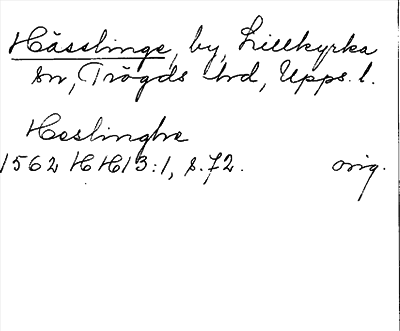 Hässlinge, by, Lillkyrka
sn, Trögds hd, Upps. l.
Heslinghe
1562 HH13:1, s. 72. orig.